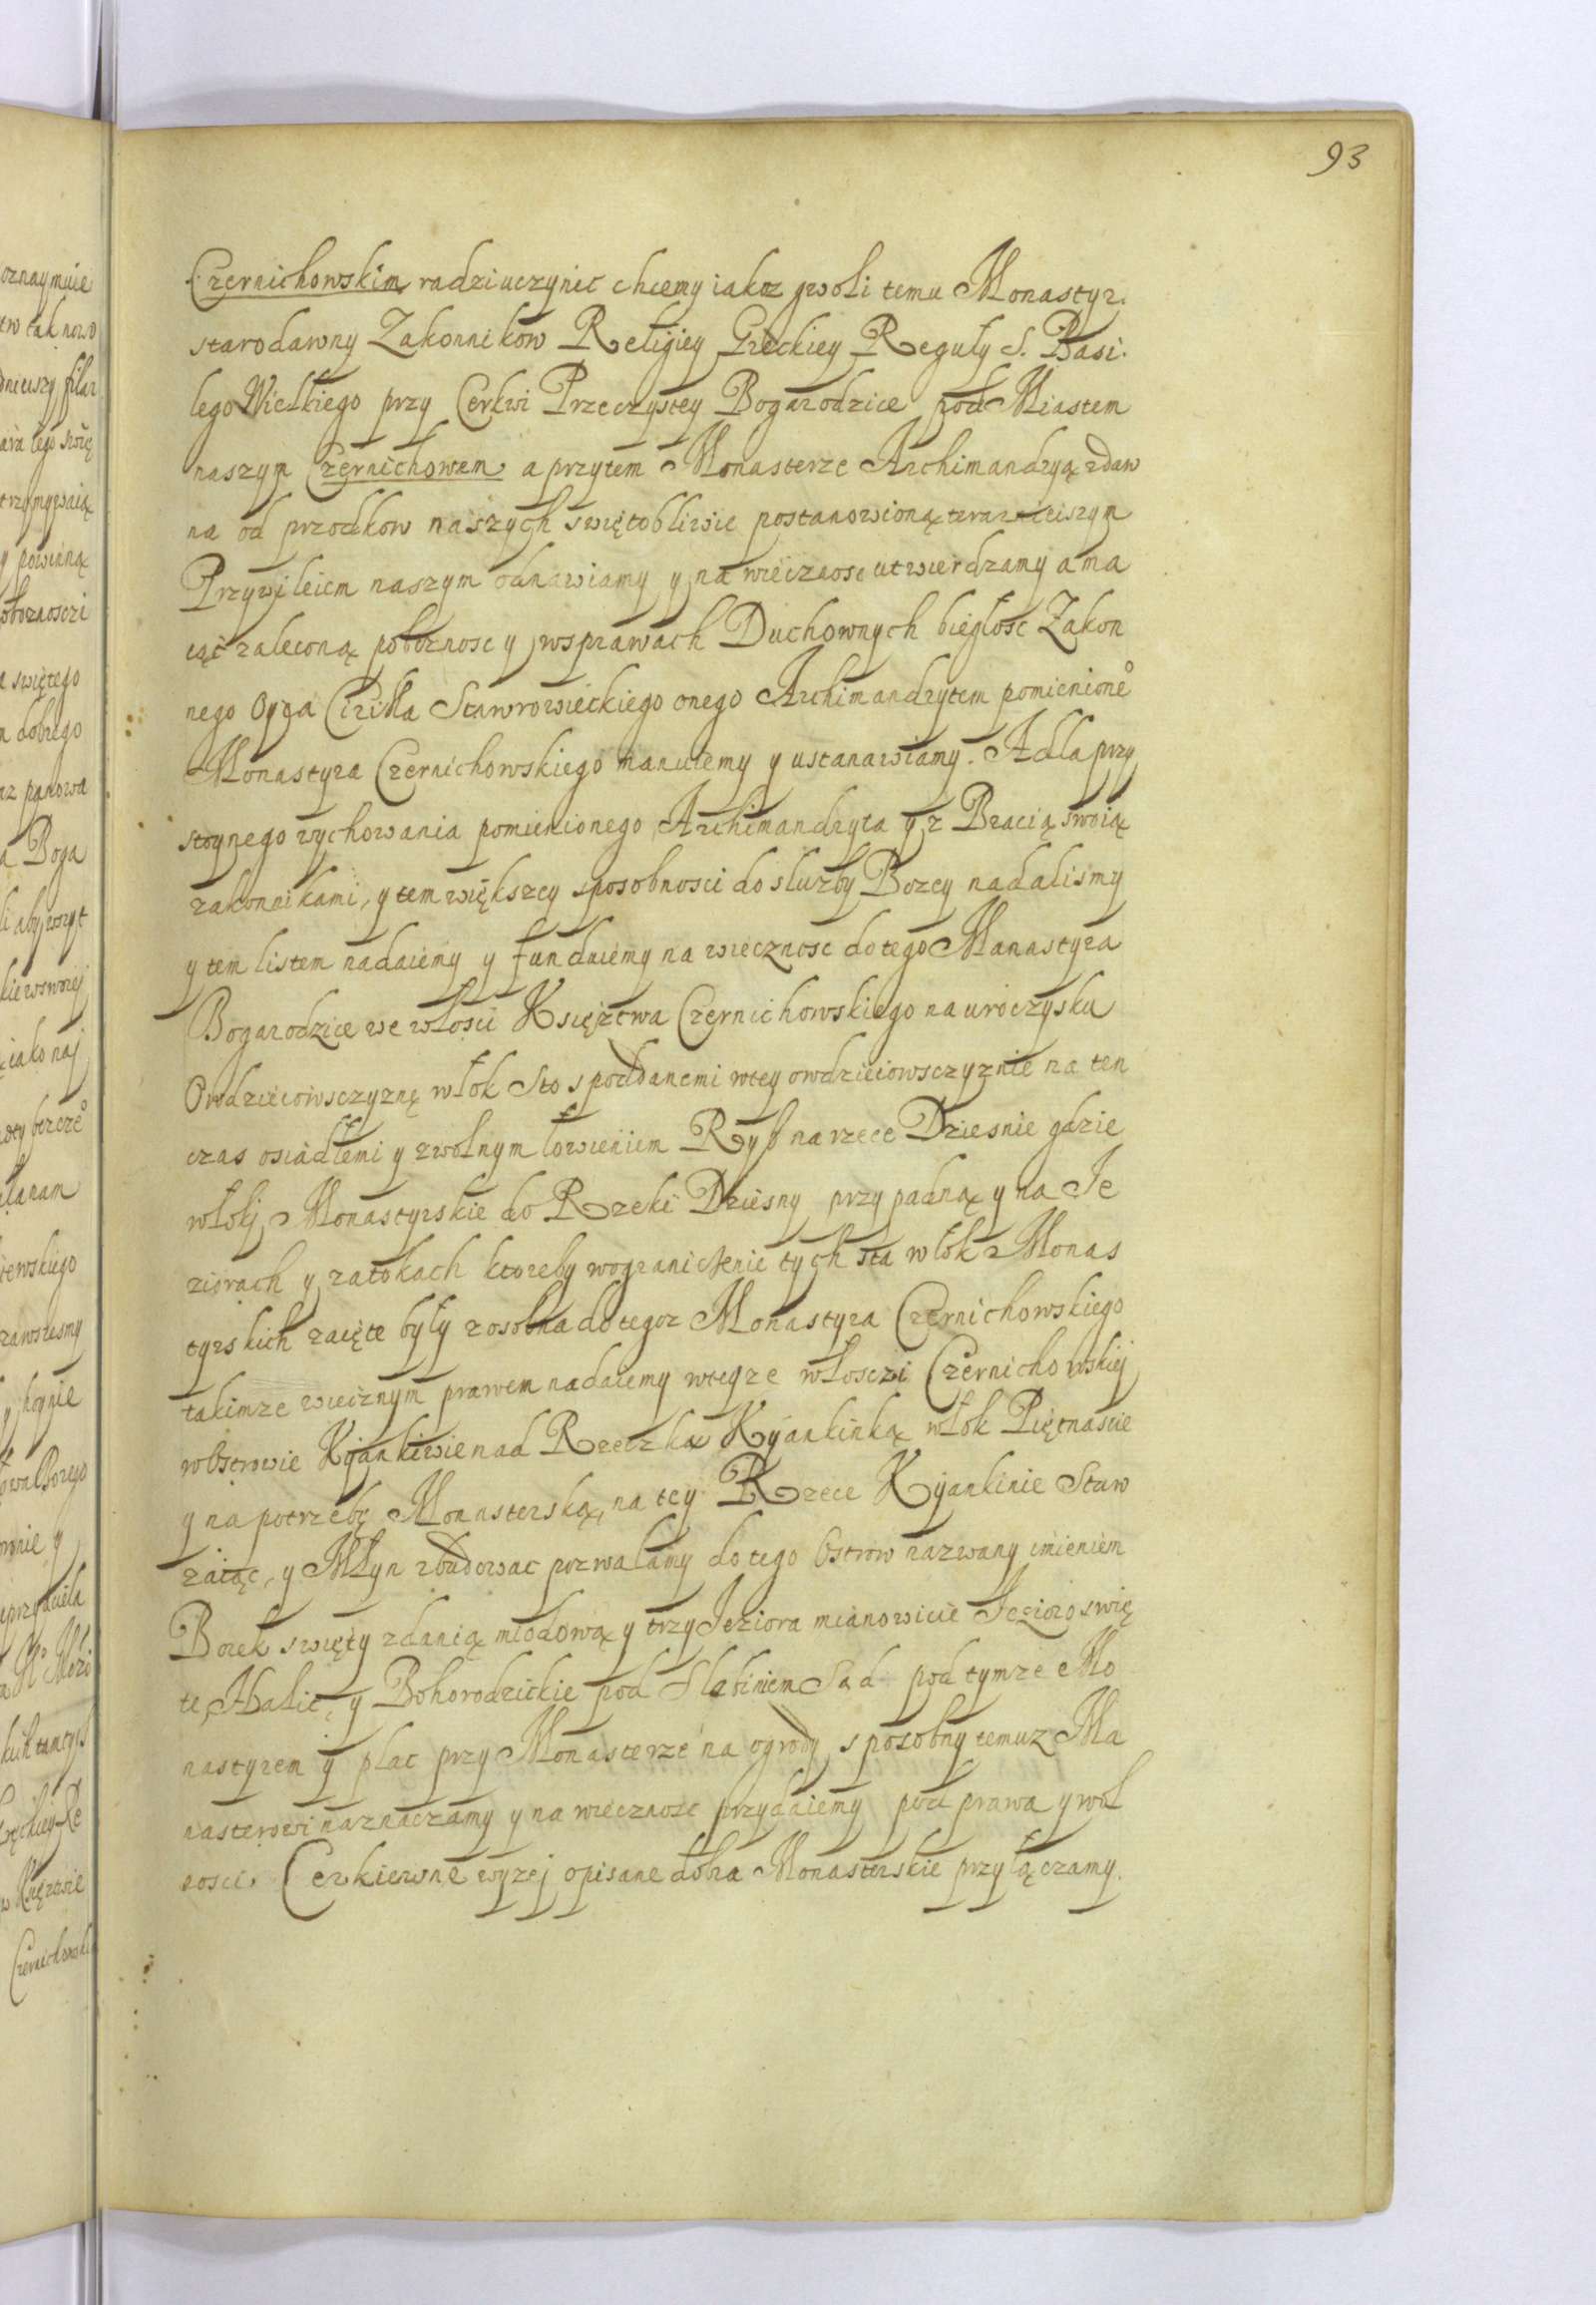 93
Czernichowskim radzi uczynic chcemy iakoz gwoli temu Monastyr.
starodawny Zakonnikow Religiey Greckiey Reguły S. Basi.
lego Wielkiego przy Cerkwi Przeczystey Bogarodzice pod Miastem
naszym Czernichowem a przytem Monasterze Archimandryą zdaw
na od przodkow naszych swiętobliwie postanowioną teraznieiszym
Przywileiem naszym odnawiamy y na wiecznosc utwierdzamy a ma
iąc zaleconą poboznosc y wsprawach Duchownych biegłosc Zakon
nego Oyca Cirilla Stawrowieckiego onego Archimandrytem pomienione°
Monastyra Czernichowskiego mianuiemy y ustanawiamy. A dla przy
stoynego wychowania pomienionego Archimandryta y z Bracią swoią
zakonnikami, y tem większey sposobnosci do sluzby Bozey nadalismy
y tem listem nadaiemy y funduiemy na wiecznosc do tego Manastyra
Bogarodzice we włosci Księżtwa Czernichowskiego na uroczysku
Owdzieiowsczyznę włok Sto s poddanemi wtey owdzieiowsczyznie na ten
czas osiadłemi y zwolnym łowieniem Ryb na rzece Dziesnie gdzie
włoki Monastyrskie do Rzeki Dziesny przypadną y na Ie
ziorach y zatokach ktoreby wograniczenie tych sta włok Monas
tyrskich zaięte były zosobna do tegoz Monastyra Czernichowskiego
takimze wiecznym prawem nadaiemy wteyze włosczi Czernichowskiej
wOstrowie Kijankiwie nad Rzeczką Kyankinką włok Piętnascie
y na potrzebę Monasterską, na tey Rzece Kijankinie Staw
zaiąc, y Młyn zbudowac pozwalamy do tego Ostrow nazwany imieniem
Borek swięty zdanią miodową y trzy Ieziora mianowicie Iezioro swię
te, Halic, y Bohorodzickie pod Slabiniem Sad pod tymze Mo
nastyrem y plac przy Monasterze na ogrody sposobny temuz Ma
nasterowi naznaczamy y na wiecznosc przydaiemy pod prawa y wol
nosci Cerkiewne wyzej opisane dobra Monasterskie przyłączamy.